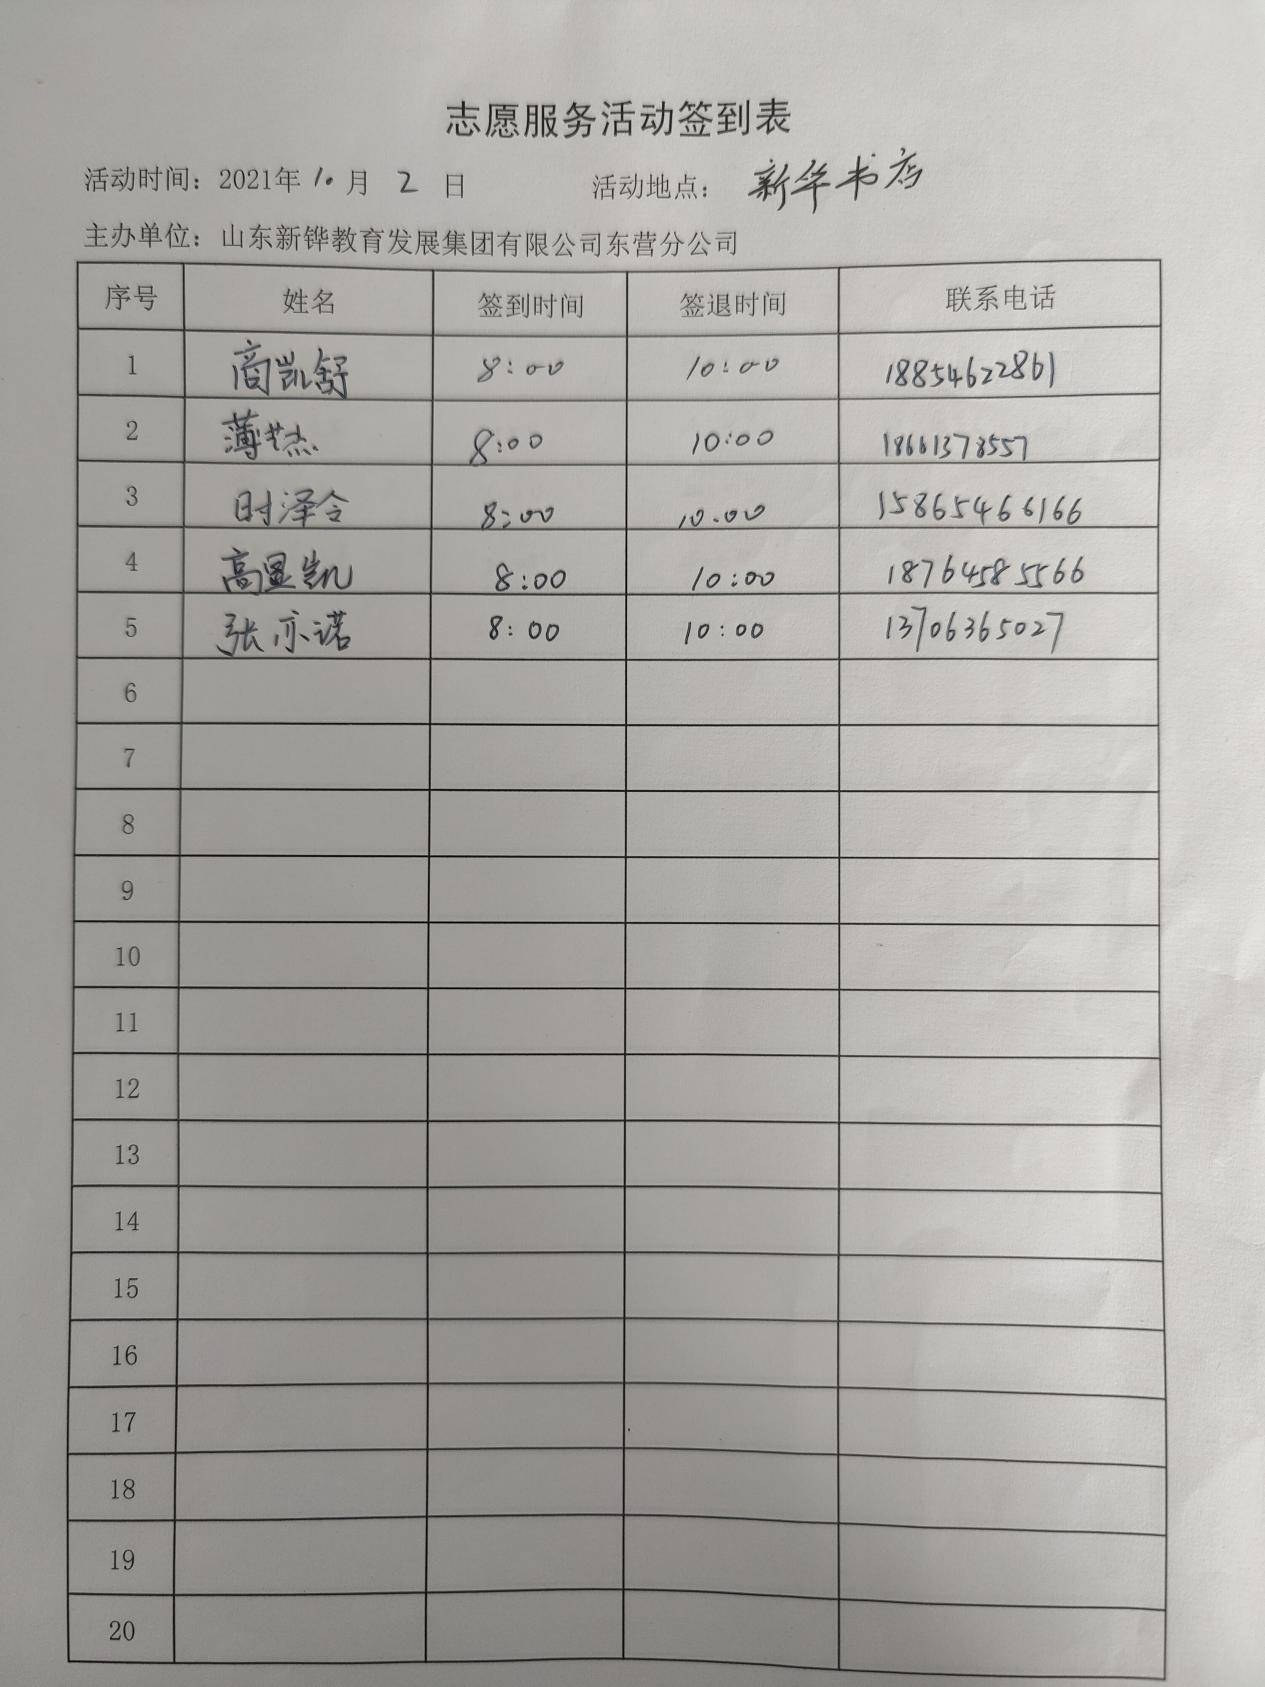 志愿服务活动签到表
活动时间：2021年 10 月 2 日 活动地点： 新华书店
主办单位：山东新铧教育发展集团有限公司东营分公司
序号 姓名 签到时间 签退时间 联系电话
1 商凯舒 8:00 10:00 18854622861
2 薄艺杰 8:00 10:00 18661378557
3 时泽令 8:00 10.00 15865466166
4 高显凯 8:00 10:00 18764585566
5 张亦诺 8:00 10:00 13706365027
6
7
8
9
10
11
12
13
14
15
16
17
18
19
20